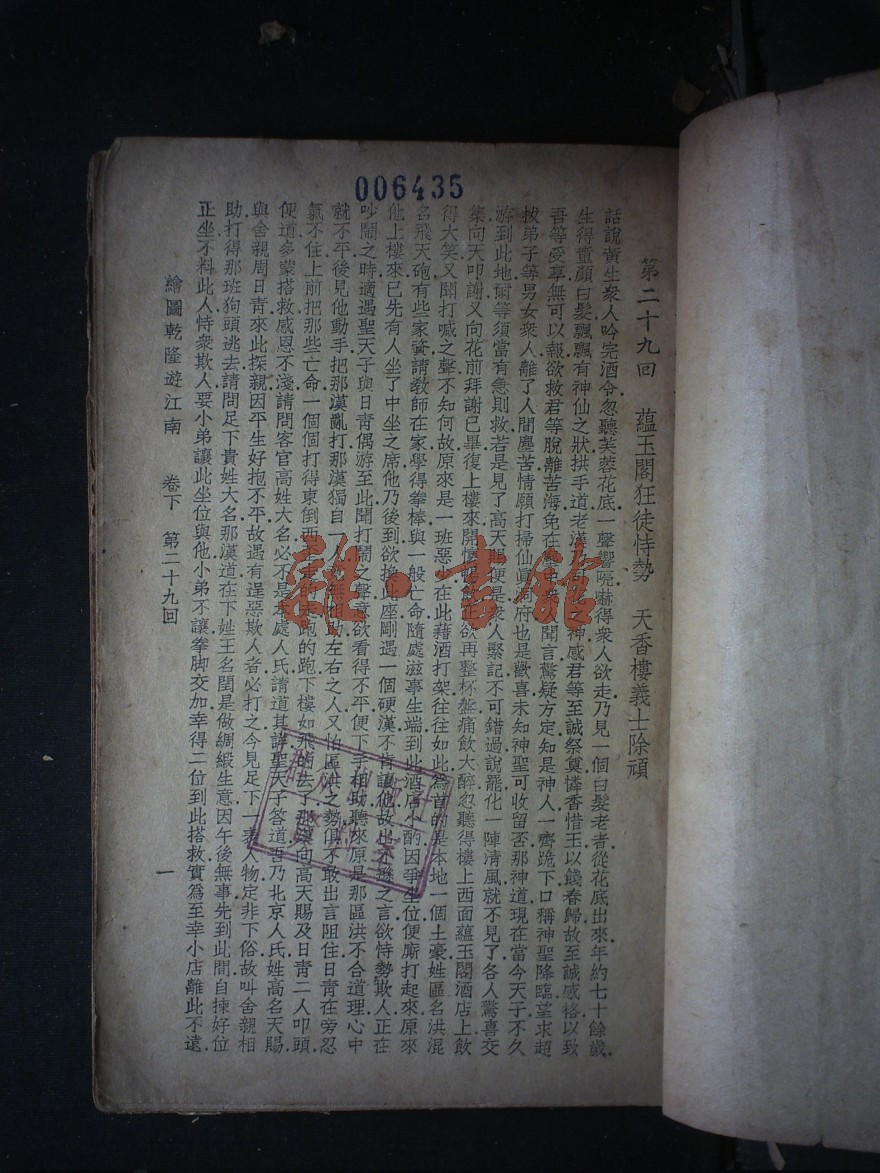 006435
第二十九回　蘊玉閣狂徒恃勢　天香樓義士除頑
話說黃生衆人吟完酒令忽聽芙蓉花底一聲響喨嚇得衆人欲走乃見一個白髮老者從花底出來年約七十餘歲
生得童顏白髮飄飄有神仙之狀拱手道老漢乃花之神感君等至誠祭奠憐香惜玉以餞春歸故至誠感格以致
吾等受享無可以報欲救君等脫離苦海免在塵聞言驚疑方定知是神人一齊跪下口稱神聖降臨望求超
拔弟子等男女衆人離了人間塵苦情願打掃仙眞府也是歡喜未知神聖可收留否那神道現在當今天子不久
游到此地爾等須當有急則救若是見了高天賜便是衆人緊記不可錯過說罷化一陣清風就不見了各人驚喜交
集向天叩謝又向花前拜謝已畢復上樓來開懷欲再整杯盤痛飲大醉忽聽得樓上西面蘊玉閣酒店上飲
得大笑又聞打喊之聲不知何故原來是一班惡少在此藉酒打架往往如此爲首的是本地一個土豪姓區名洪混
名飛天砲有些家資請教師在家學得拳棒與一般亡命隨處滋事生端到此酒店小酌因爭坐位便廝打起來原來
他上樓來已先有人坐了中坐之席他乃後到欲換此座剛遇一個硬漢不肯讓他故出不遜之言欲恃勢欺人正在
吵鬧之時適遇聖天子與日青偶游至此聞打鬧之聲意欲看得不平便下手相助聽來原是那區洪不合道理心中
就不平後見他動手把那漢亂打那漢獨自一人無相助左右之人又怕區洪之勢俱不敢出言阻住日青在旁忍
氣不住上前把那些亡命一個個打得東倒西跑的跑下樓如飛的去了那漢向高天賜及日青二人叩頭
便道多蒙搭救感恩不淺請問客官高姓大名必不是本處人氏請道其詳聖天子答道吾乃北京人氏姓高名天賜
與舍親周日青來此探親因平生好抱不平故遇有逞惡欺人者必打之今見足下一表人物定非下俗故叫舍親相
助打得那班狗頭逃去請問足下貴姓大名那漢道在下姓王名閏是做綢緞生意因午後無事先到此間自揀好位
正坐不料此人恃衆欺人要小弟讓此坐位與他小弟不讓拳脚交加幸得二位到此搭救實爲至幸小店離此不遠
繪圖乾隆遊江南　卷下　第二十九回　一
書館